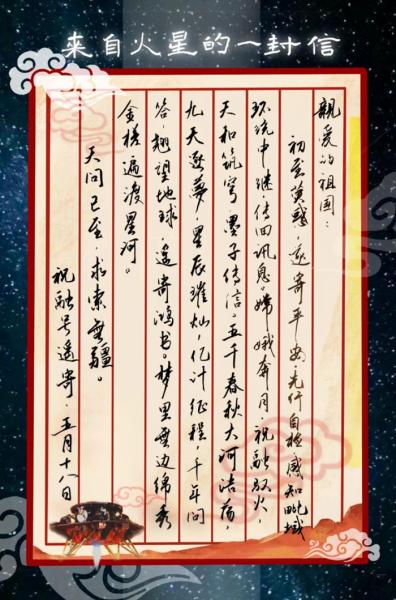 来自火星的一封信
親爱的祖国：
初至荧惑，遥寄平安。先行自检，感知毗域
环绕中继，传回讯息。嫦娥奔月，祝融驭火，
天和筑穹，墨子传信。五千春秋大河浩荡，
九天逐夢，星辰璀灿，亿计征程，千年问
答，翘望地球，遥寄鸿书。梦里无边绵秀
金槎遍渡星河。
天问已至，求索無疆。
祝融号遥寄·五月十八日